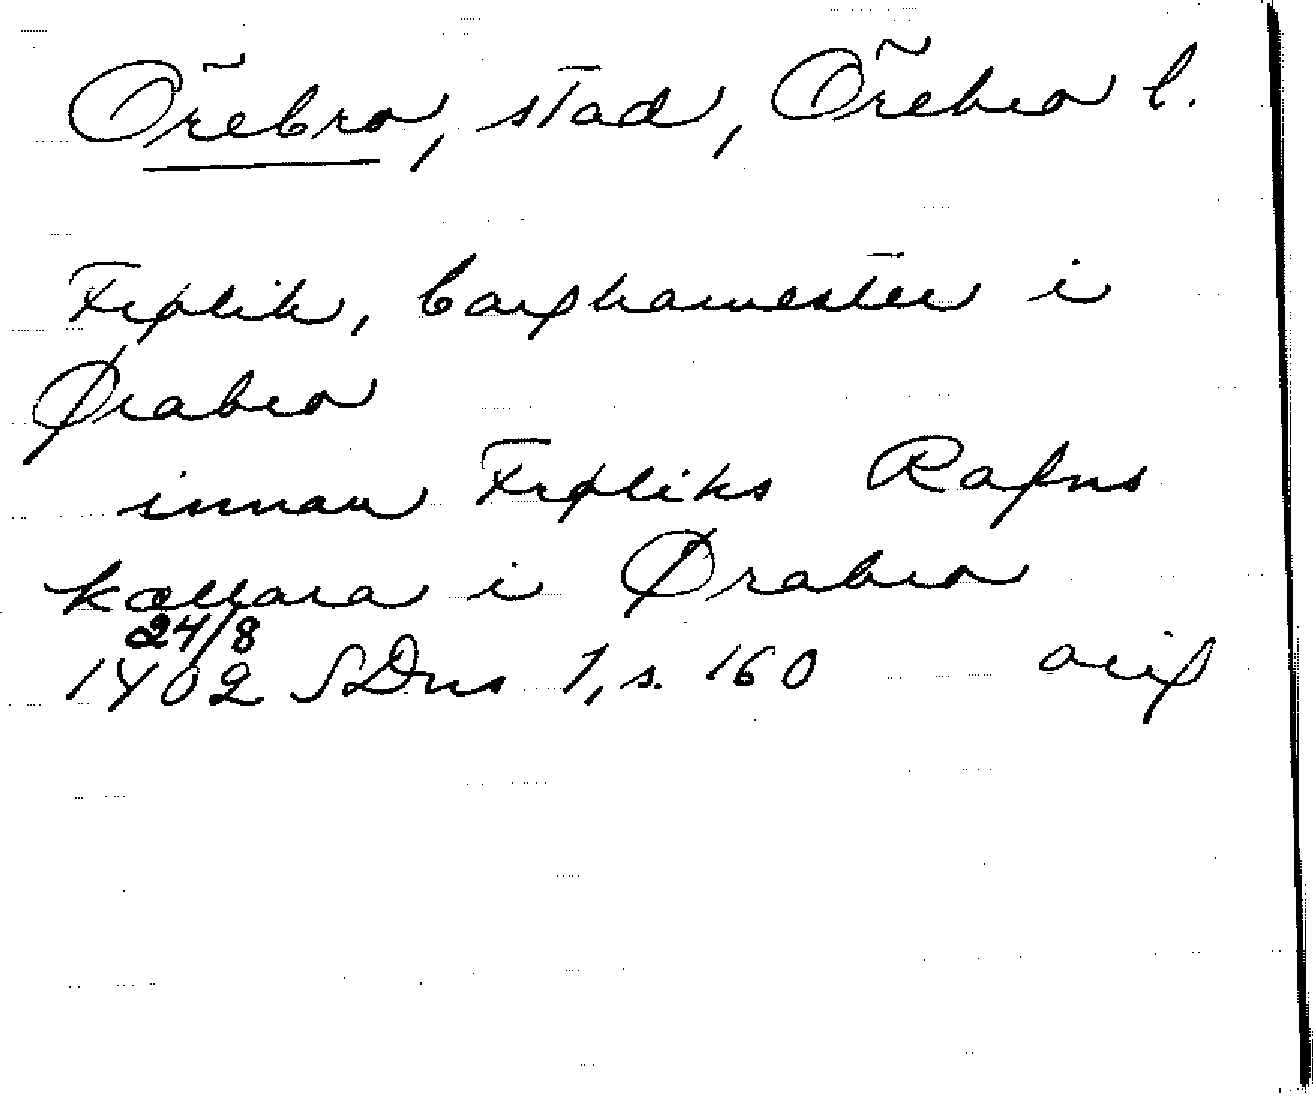 Örebro, stad, Örebro l.
Frplik, borghamester i
Ørabro
innan Frpliks Rafns
kællara i Ørabro
24/8
1402 SDns 1, s. 160 orig